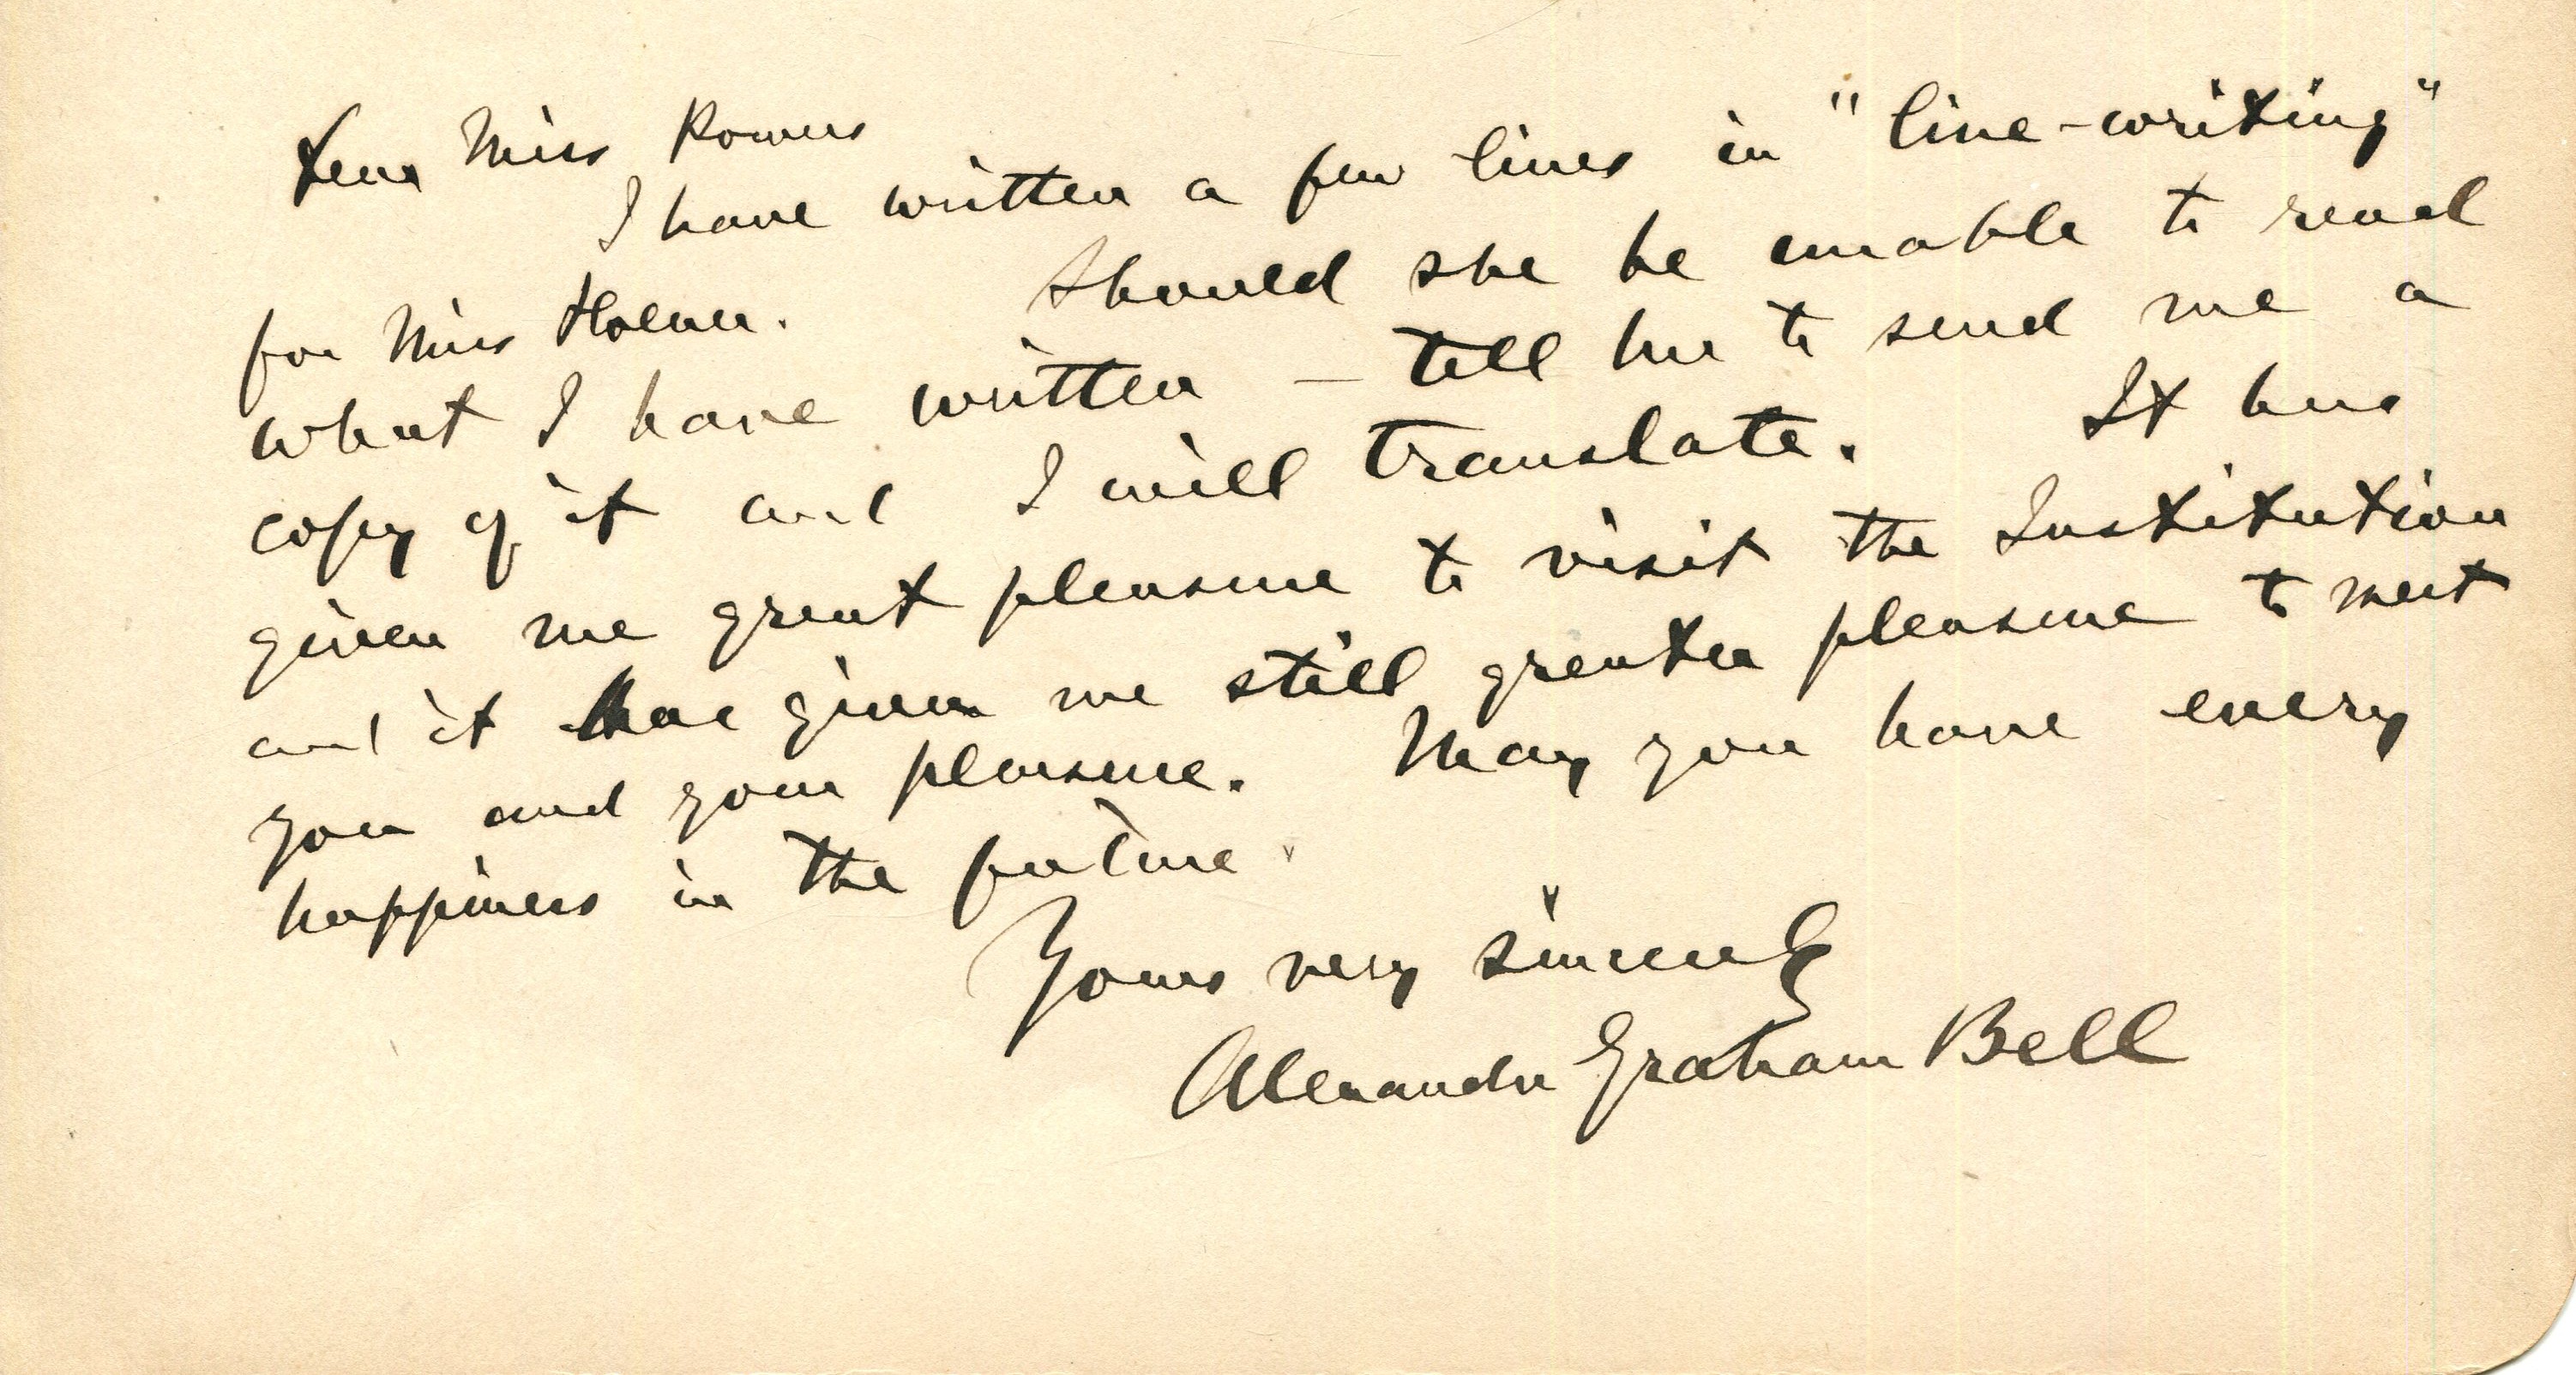 Dear Miss Powers
I have written a few lines in "line-writing"
for Miss Holman. Should she be unable to read
what I have written — tell her to send me a
copy of it and I will translate. It has
given me great pleasure to visit the Institution
and it has given me still greater pleasure to meet
you and your pleasure. May you have every
happiness in the future.
Yours very sincerely
Alexander Graham Bell